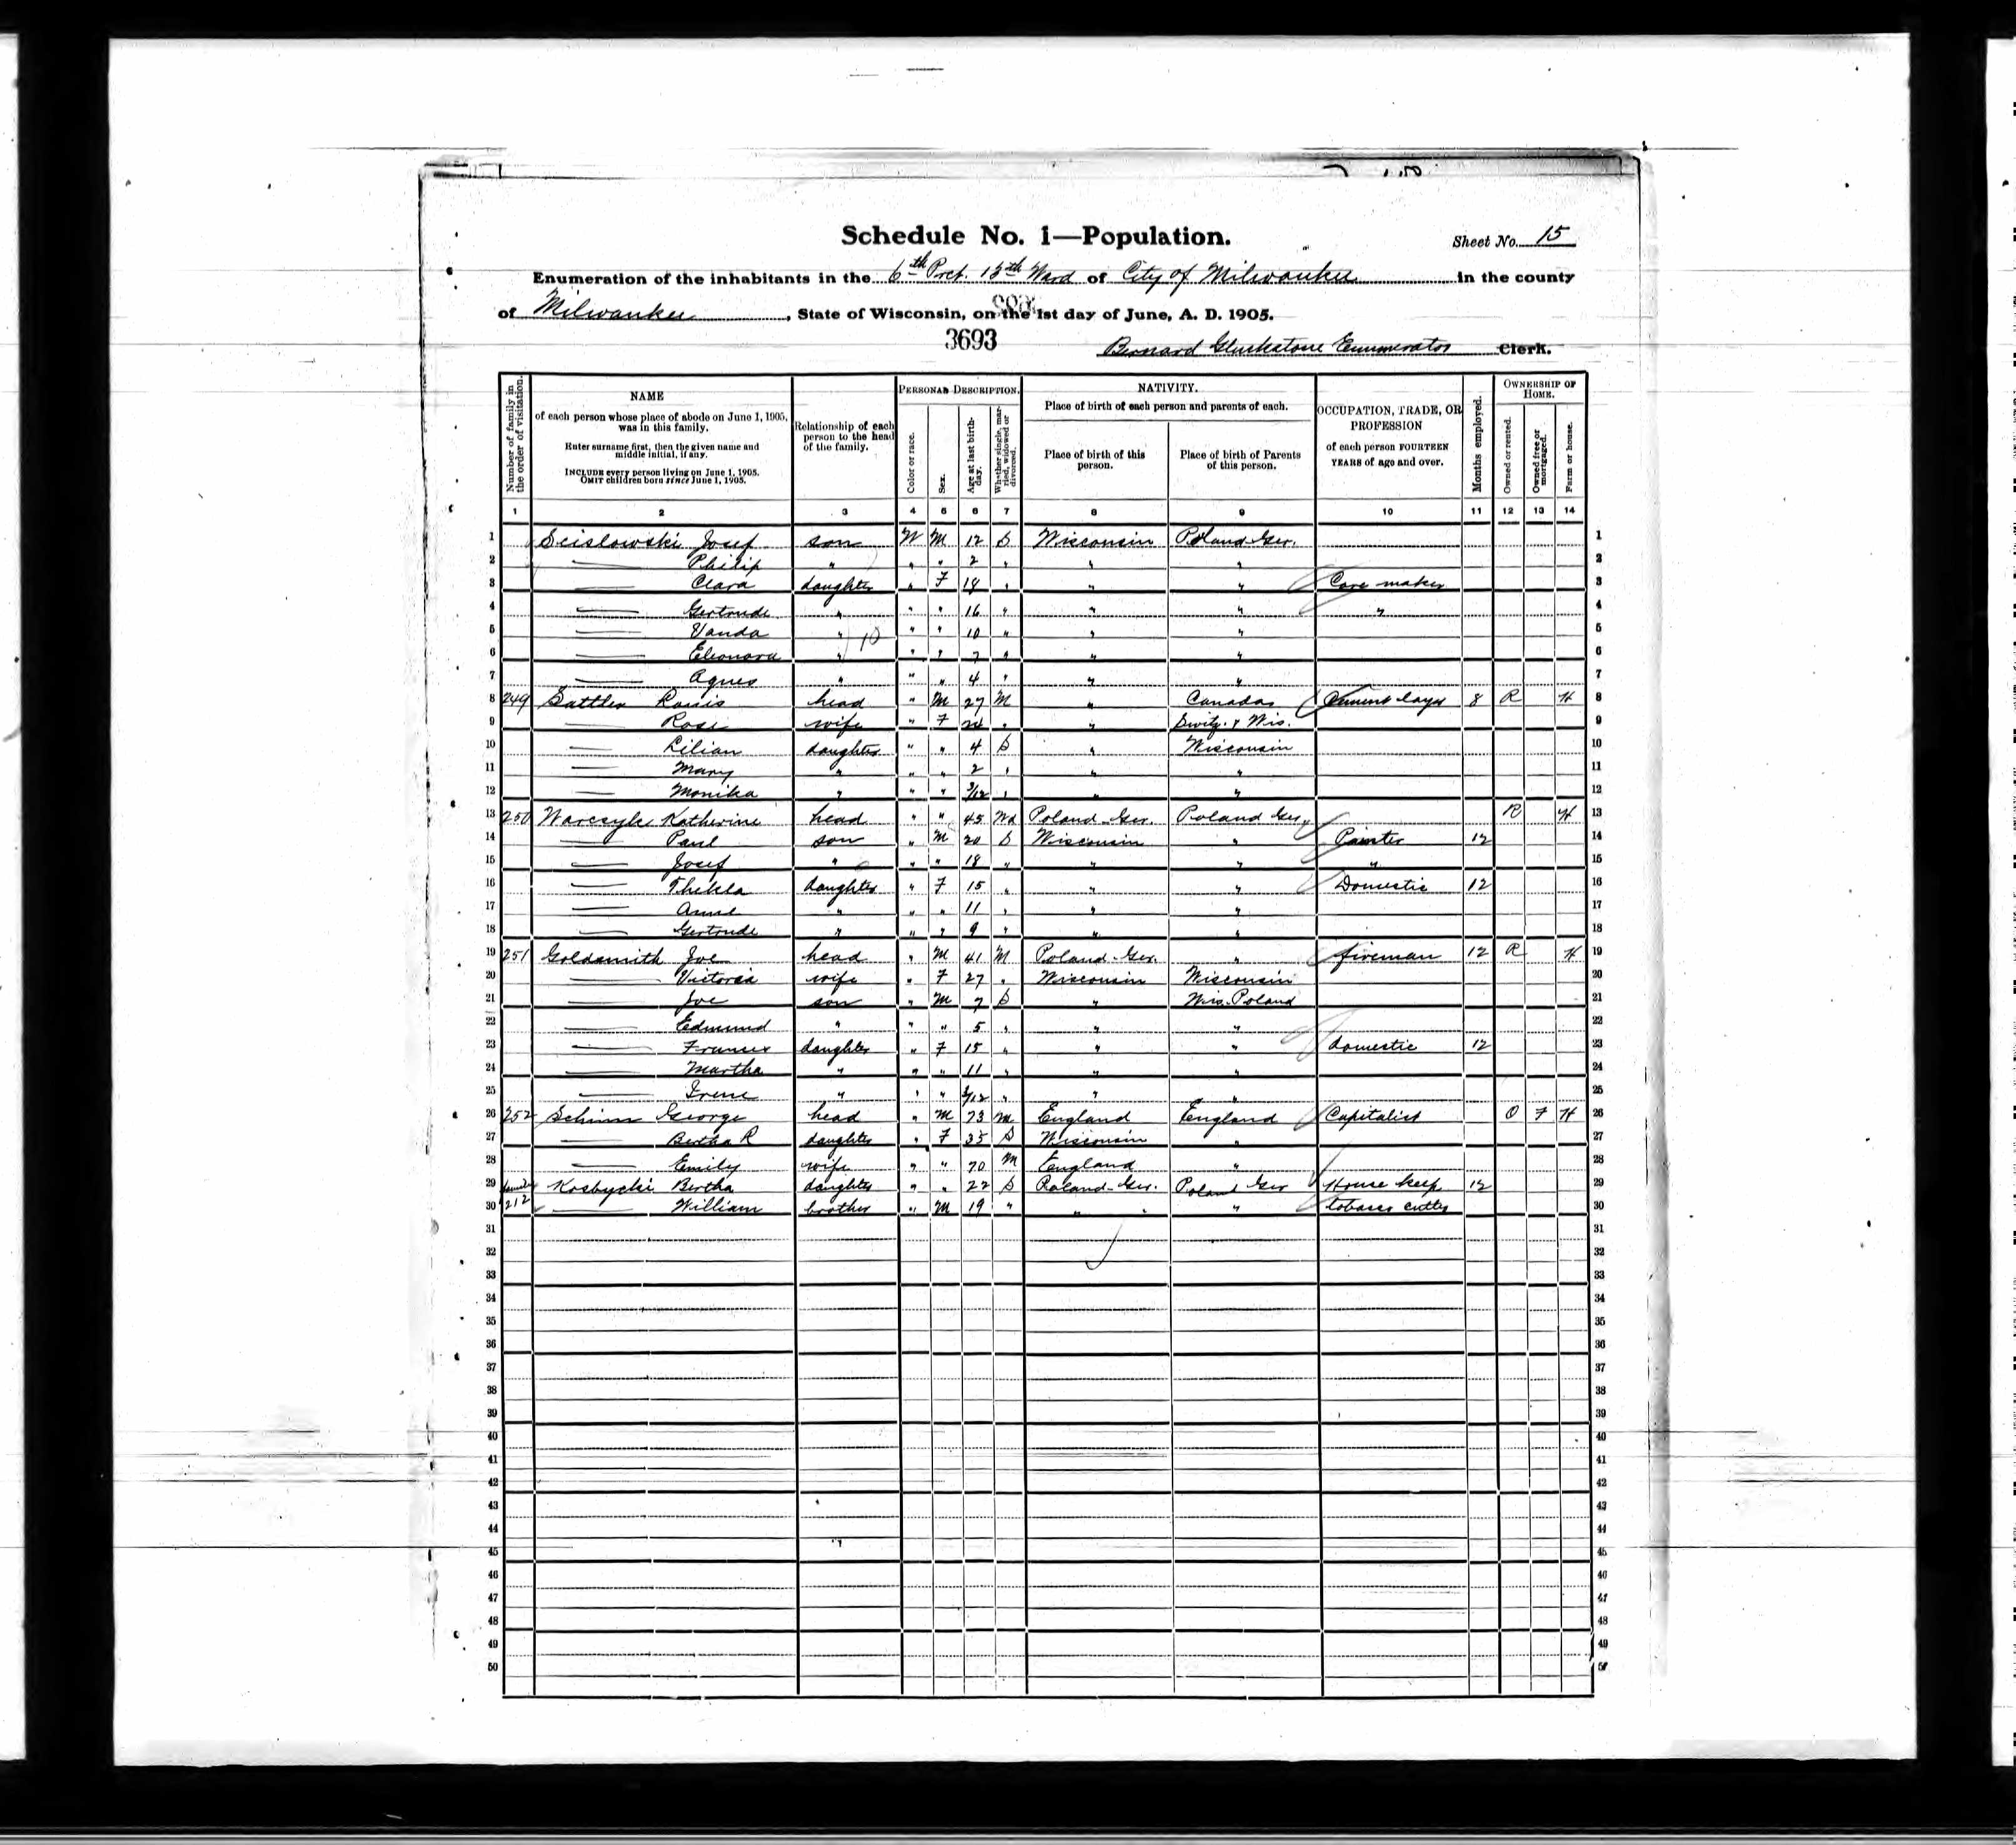 Schedule No. 1—Population.
Sheet No. 15
Enumeration of the inhabitants in the 6th Prct. 13th Ward of City of Milwaukee in the county
of Milwaukee, State of Wisconsin, on the 1st day of June, A. D. 1905.
3693
Bernard Gluckstone Enumerator Clerk.
Number of family in the order of visitation.
NAME
of each person whose place of abode on June 1, 1905, was in this family.
Enter surname first, then the given name and middle initial, if any.
INCLUDE every person living on June 1, 1905.
OMIT children born since June 1, 1905.
Relationship of each person to the head of the family.
PERSONAL DESCRIPTION.
Color or race.
Sex.
Age at last birthday.
Whether single, married, widowed or divorced.
NATIVITY.
Place of birth of each person and parents of each.
Place of birth of this person.
Place of birth of Parents of this person.
OCCUPATION, TRADE, OR PROFESSION
of each person FOURTEEN YEARS of age and over.
Months employed.
OWNERSHIP OF HOME.
Owned or rented.
Owned free or mortgaged.
Farm or house.
1 2 3 4 5 6 7 8 9 10 11 12 13 14
1 Scislowski Josef son W M 12 S Wisconsin Poland Ger. 1
2 — Philip " " " 2 " " " 2
3 — Clara daughter " F 18 " " " Core maker 3
4 — Gertrude " " " 16 " " " " 4
5 — Vanda " 10 " " 10 " " " 5
6 — Eleonora " " " 7 " " " 6
7 — Agnes " " " 4 " " " 7
8 249 Sattler Louis head " M 27 M " Canada Cement layer 8 R H 8
9 — Rose wife " F 24 " " Switz. & Wis. 9
10 — Lilian daughter " " 4 S " Wisconsin 10
11 — Mary " " " 2 " " " 11
12 — Monika " " " 3/12 " " " 12
13 250 Katherine head " " 45 Wd Poland Ger. Poland Ger. R H 13
14 — Paul son " M 20 S Wisconsin " Painter 12 14
15 — Josef " " " 18 " " " " 15
16 — Thekla daughter " F 15 " " " Domestic 12 16
17 — Anna " " " 11 " " " 17
18 — Gertrude " " " 9 " " " 18
19 251 Goldsmith Joe head " M 41 M Poland Ger. " fireman 12 R H 19
20 — Victoria wife " F 27 " Wisconsin Wisconsin 20
21 — Joe son " M 7 S " Wis. Poland 21
22 — Edmund " " " 5 " " " 22
23 — Frances daughter " F 15 " " " domestic 12 23
24 — Martha " " " 11 " " " 24
25 — Irene " " " /12 " " " 25
26 252 George head " M 73 M England England Capitalist O F H 26
27 — Bertha R daughter " F 35 S Wisconsin " 27
28 — Emily wife " " 70 M England " 28
29 family Kosbycki Bertha daughter " " 22 S Poland-Ger. Poland Ger House keep 12 29
30 212 — William brother " M 19 " " " tobacco cutter 30
31 31
32 32
33 33
34 34
35 35
36 36
37 37
38 38
39 39
40 40
41 41
42 42
43 43
44 44
45 45
46 46
47 47
48 48
49 49
50 50